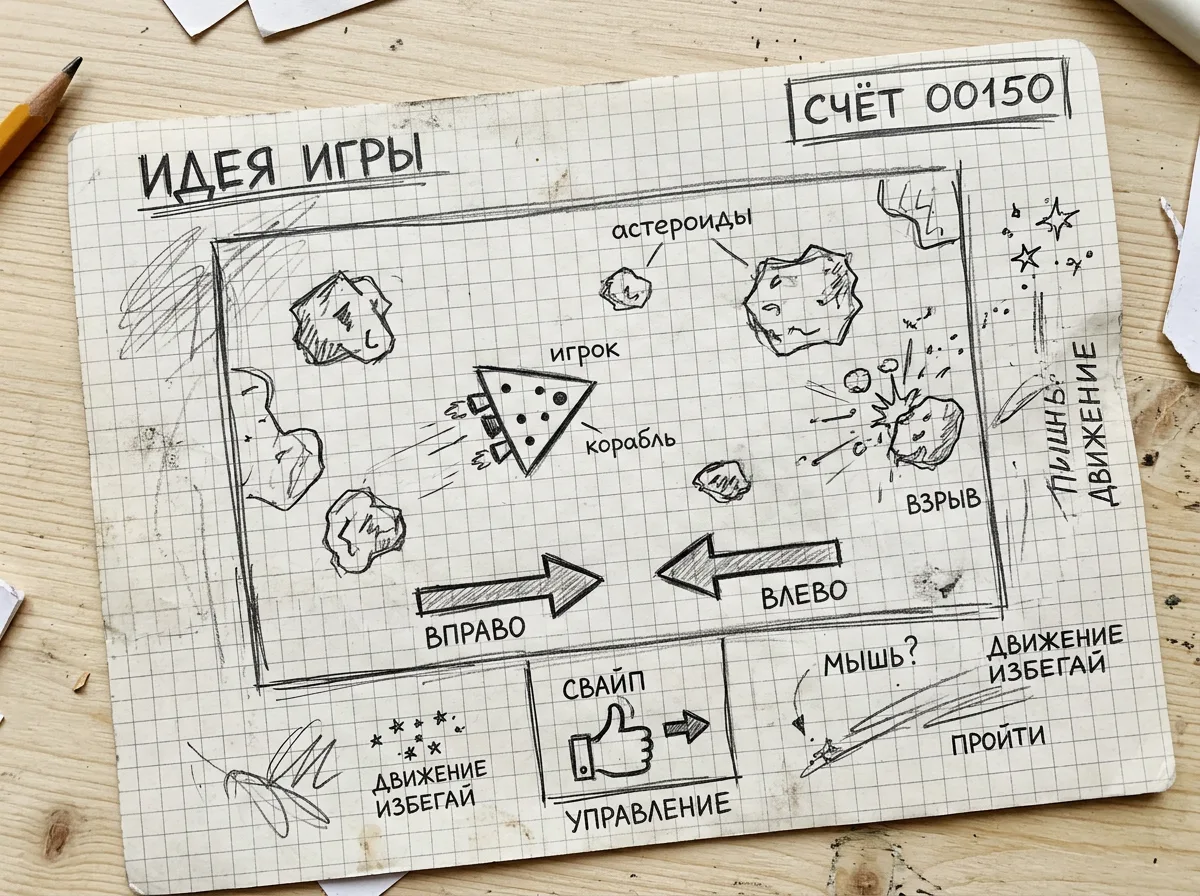 ИДЕЯ ИГРЫ
СЧЁТ 00150
астероиды
игрок
корабль
ВЗРЫВ
ДВИЖЕНИЕ
ВПРАВО
ВЛЕВО
СВАЙП
УПРАВЛЕНИЕ
ДВИЖЕНИЕ
ИЗБЕГАЙ
МЫШЬ?
ДВИЖЕНИЕ
ИЗБЕГАЙ
ПРОЙТИ